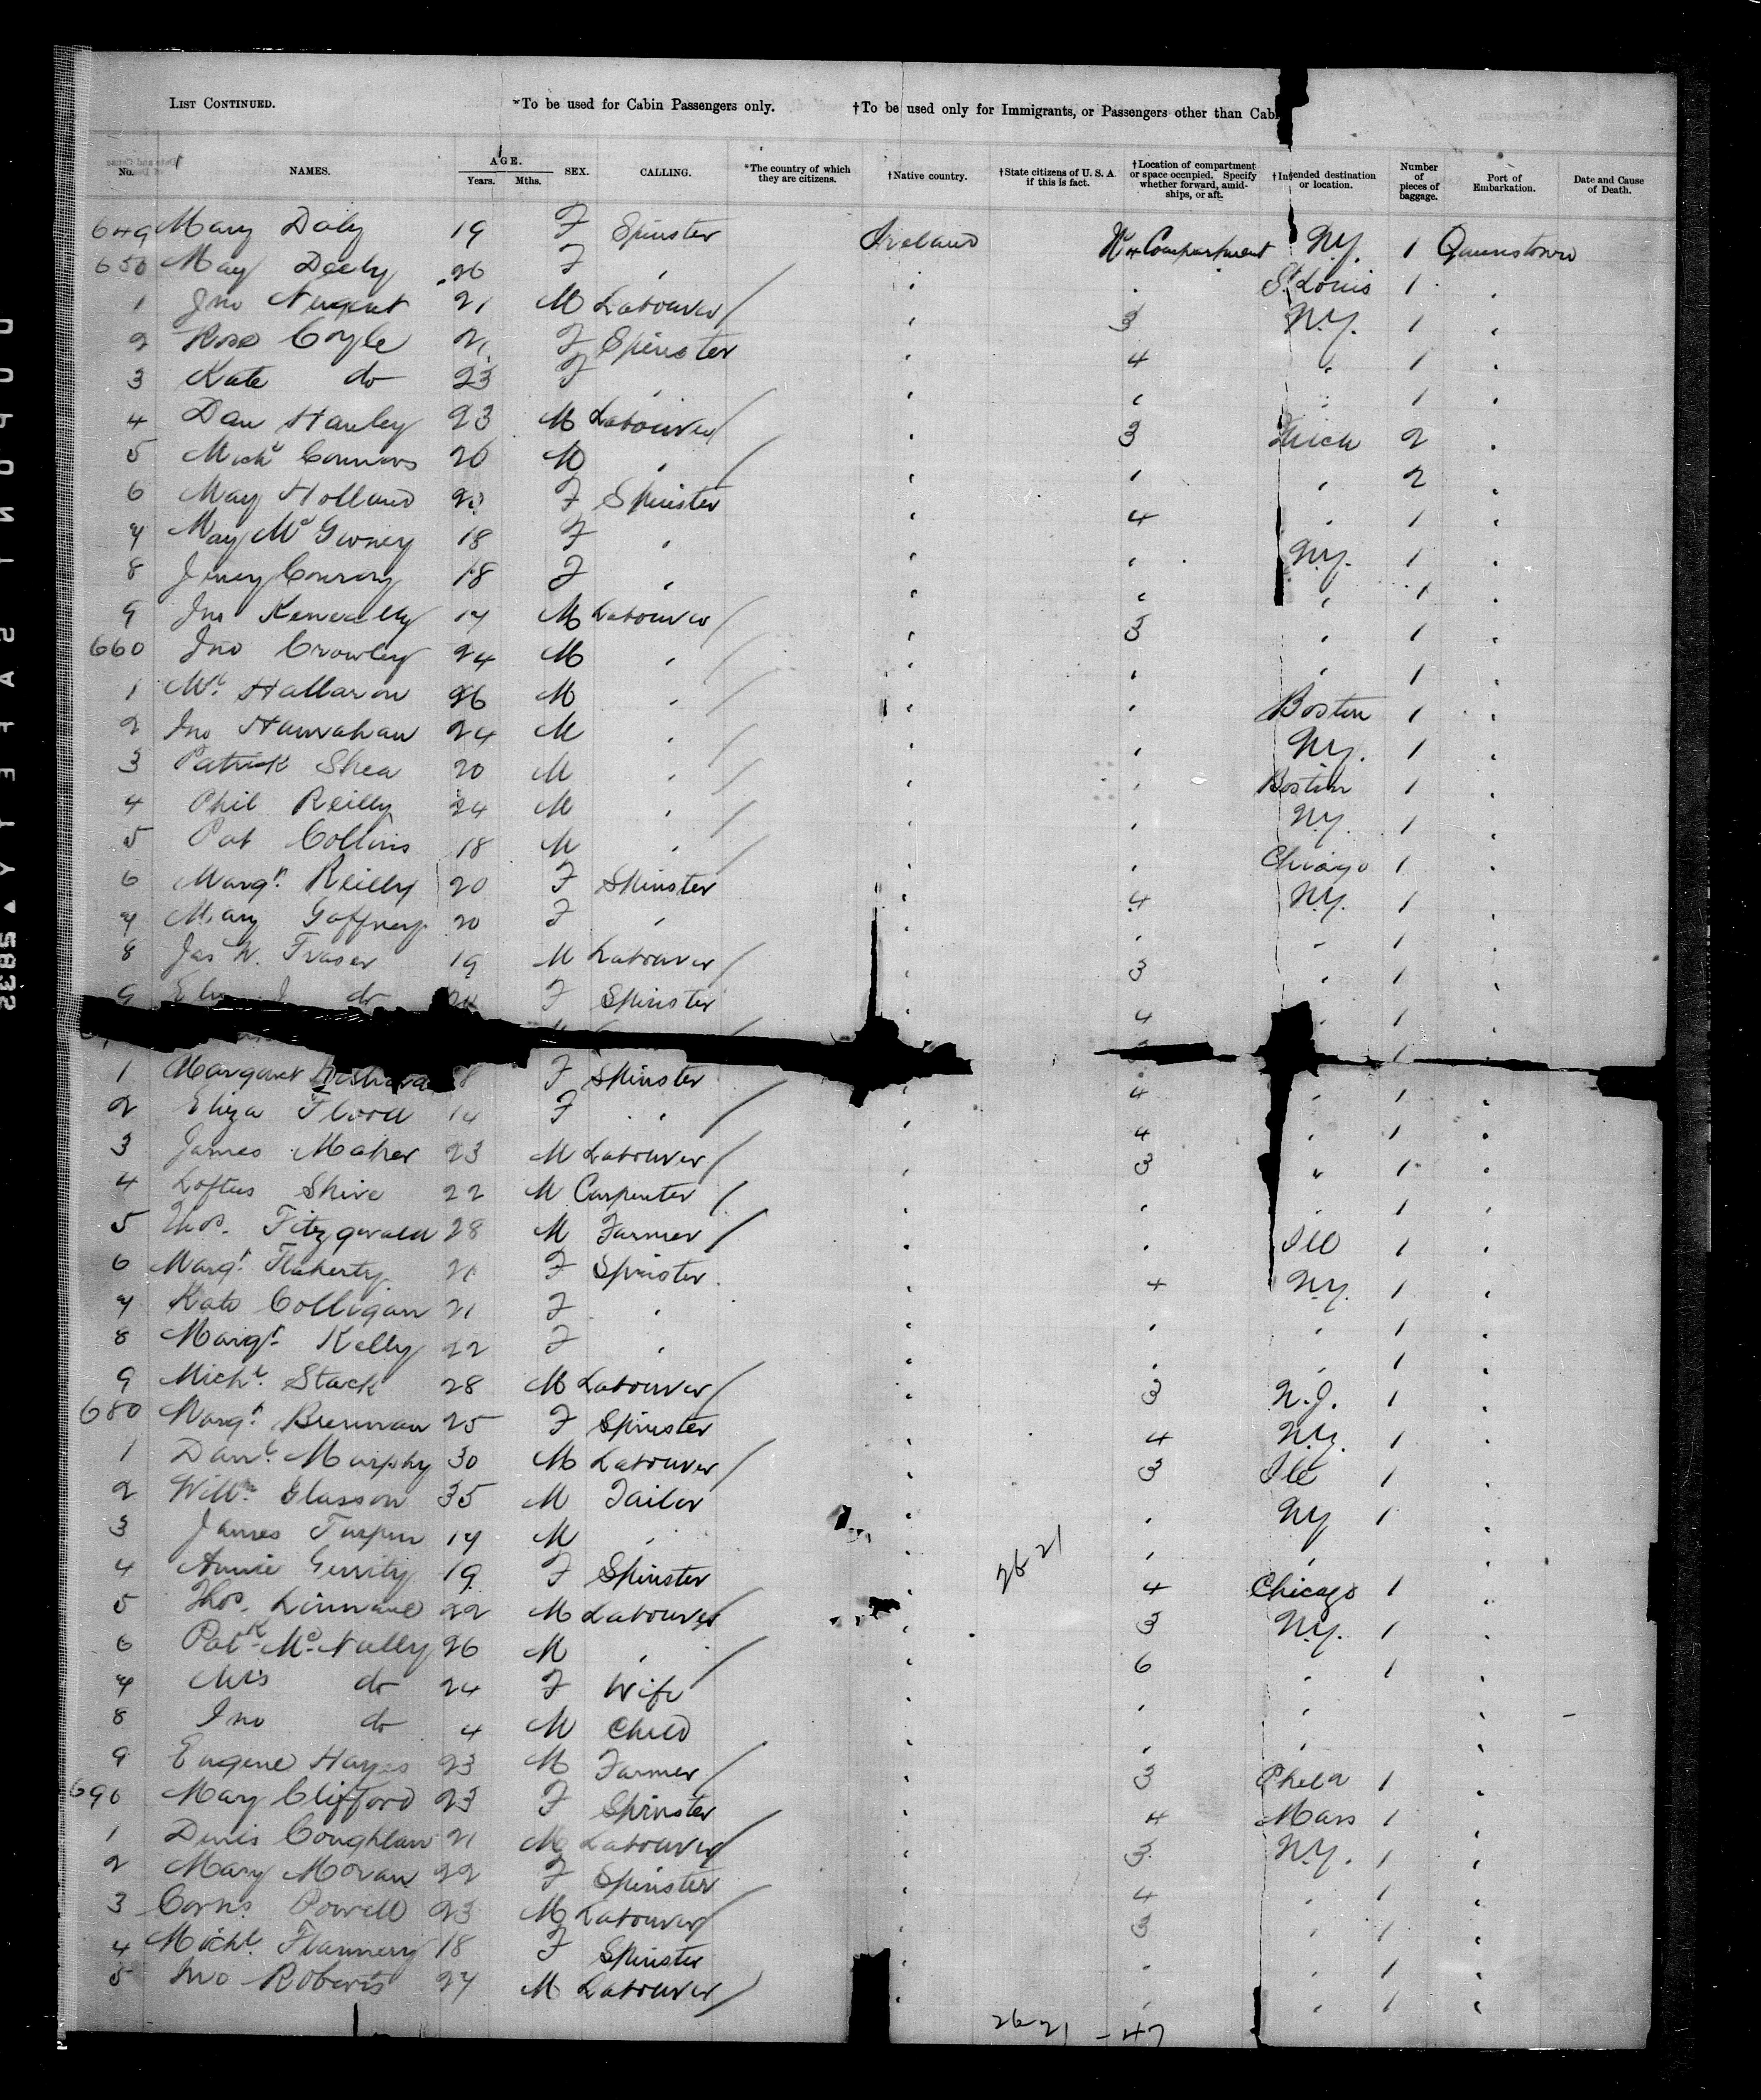 LIST CONTINUED. *To be used for Cabin Passengers only. †To be used only for Immigrants, or Passengers other than Cab
No. NAMES. AGE. Years. Mths. SEX. CALLING. *The country of which they are citizens. †Native country. †State citizens of U. S. A. if this is fact. †Location of compartment or space occupied. Specify whether forward, amidships, or aft. †Intended destination or location. Number of pieces of baggage. Port of Embarkation. Date and Cause of Death.
649 Mary Daly 19 F Spinster Ireland No 4 Compartment N.Y. 1 Queenstown
650 May Deely 26 F " " " St Louis 1 "
1 Jno Nugent 21 M Labourer / " 3 N.Y. 1 "
2 Rose Coyle 21 F Spinster " 4 " 1 "
3 Kate do 23 F " " " " 1 "
4 Dan Hanley 23 M Labourer / " 3 Mich 2 "
5 Michl Connors 26 M " / " " " 2 "
6 May Holland F Spinster " 4 " 1 "
7 May Mc 18 F " " " N.Y. 1 "
8 Conroy 18 F " " " " 1 "
9 Jno Keneally 17 M Labourer / " 3 " 1 "
660 Jno Crowley 24 M " / " " " 1 "
1 Ml Hallaron 26 M " / " " Boston 1 "
2 Jno Hanrahan 24 M " / " " N.Y. 1 "
3 Patrick Shea 20 M " / " " Boston 1 "
4 Phil Reilly 24 M " / " " N.Y. 1 "
5 Pat Collins 18 M " / " " Chicago 1 "
6 Margt Reilly 20 F Spinster " 4 N.Y. 1 "
7 Mary Gaffney 20 F " " " " 1 "
8 Jas W. Fraser 19 M Labourer / " 3 " 1 "
9 do F Spinster " 4 " 1 "
1 Margaret 8 F Spinster 4 " 1 "
2 Eliza Flood 14 F " / " 4 " 1 "
3 James Maher 23 M Labourer / " 3 " 1 "
4 Loftus Shire 22 M Carpenter / " " " 1 "
5 Thos. Fitzgerald 28 M Farmer / " " Ill 1 "
6 Margt. Flaherty 21 F Spinster " 4 N.Y. 1 "
7 Kate Colligan 21 F " " " " 1 "
8 Margt. Kelly 22 F " " " " 1 "
9 Michl. Stack 28 M Labourer / " 3 N.J. 1 "
680 Margt. Brennan 25 F Spinster " 4 N.Y. 1 "
1 Danl. Murphy 30 M Labourer / " 3 Ill 1 "
2 Willm Glasson 35 M Tailor " NY 1 "
3 James Turpin 17 M " " " " "
4 Annie Gerrity 19 F Spinster " 26 21 4 Chicago 1 "
5 Thos. Linnane 22 M Labourer / " 3 N.Y. 1 "
6 Patk Mc.Nally 26 M " / " 6 " 1 "
7 Mrs do 24 F Wife " " " "
8 Jno do 4 M Child " " " "
9 Eugene Hayes 23 M Farmer / " 3 Phila 1 "
690 Mary Clifford 23 F Spinster " 4 Mass 1 "
1 Denis Coughlan 21 M Labourer / " 3 N.Y. 1 "
2 Mary Moran 22 F Spinster " 4 " 1 "
3 Corns. Powell 23 M Labourer / " 3 " 1 "
4 Michl. Flannery 18 F Spinster " " " 1 "
5 Jno Roberts 27 M Labourer / " " " 1 "
26 21 - 47